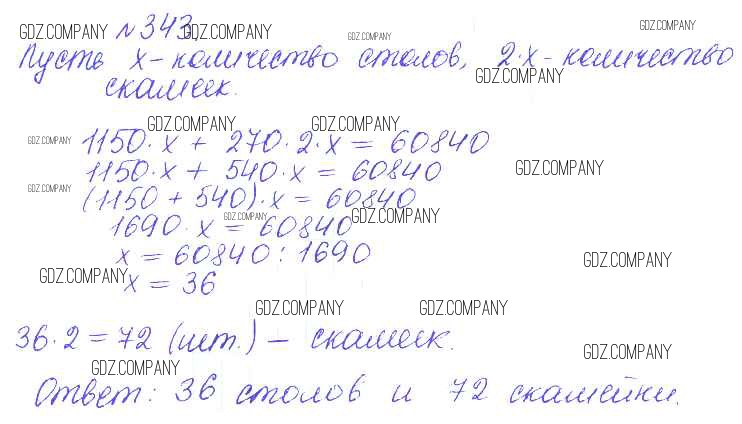 GDZ.COMPANY № 343. GDZ.COMPANY GDZ.COMPANY GDZ.COMPANY
Пусть x - количество столов, 2·x - количество
GDZ.COMPANY
скамеек.
GDZ.COMPANY GDZ.COMPANY
GDZ.COMPANY 1150·x + 270·2·x = 60840
1150·x + 540·x = 60840 GDZ.COMPANY
GDZ.COMPANY (1150 + 540)·x = 60840
GDZ.COMPANY GDZ.COMPANY
1690·x = 60840
x = 60840 : 1690 GDZ.COMPANY
GDZ.COMPANY x = 36
GDZ.COMPANY GDZ.COMPANY
36·2 = 72 (шт.) - скамеек.
GDZ.COMPANY GDZ.COMPANY
Ответ: 36 столов и 72 скамейки.